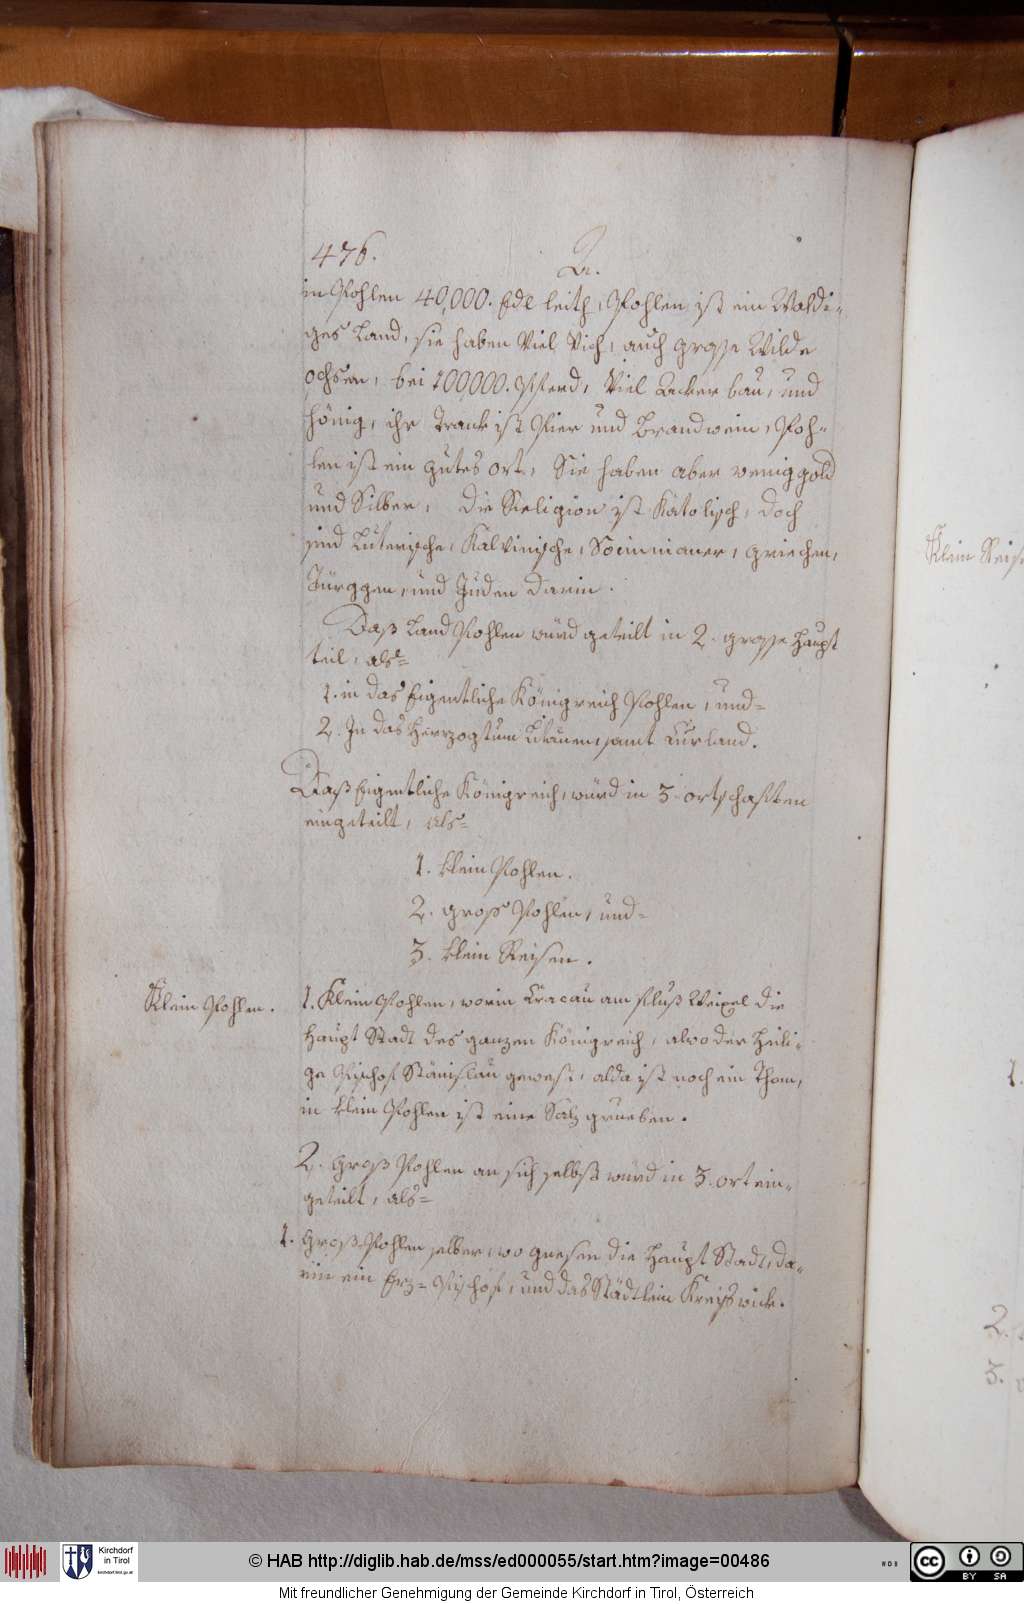 476.
A.
in Pohlen 40,000. Edl leith, Pohlen ist ein Waldi-
ges Land, sie haben Viel Vich, auch grosse Wilde
ochsen, bei 100000. Pferd, Viel Acker bau, und
hönig, ihr Trank ist Pier und Brandwein, Poh-
len ist ein gutes ort, Sie haben aber wenig gold
und Silber, die Religion ist Katolisch, doch
sind Luterische, Kalvinische, Socinnianer, griechen,
Türggen, und Juden darin.
Daß Land Pohlen würd geteilt in 2. grosse Haupt
teil, als=
1. in das Eigentliche Königreich Pohlen, und=
2. In das Herzogtum Litauen, samt Curland.
Daß Eigentliche Königreich, würd in 3. ortschaften
eingeteilt, als=
1. klein Pohlen.
2. gross Pohlen, und=
3. klein Reisen.
Klein Pohlen.
1. Klein Pohlen, worin Cracau am fluß Weixel die
Haupt Stadt des ganzen Königreich, alwo der Heili-
ge Pischof Stänislau gewest, alda ist noch ein Thom,
in klein Pohlen ist eine Salz grueben.
2. Groß Pohlen an sich selbst würd in 3. ort ein-
geteilt, als=
1. Groß Pohlen selber, wo Gnesen die Haupt Stadt, da-
rin ein Erz=Pischof, und das Städtlein Kreisswick.
Klein Reis
1.
2.
3.
Kirchdorf
in Tirol
kirchdorf.tirol.gv.at
© HAB http://diglib.hab.de/mss/ed000055/start.htm?image=00486
WDB
cc BY SA
Mit freundlicher Genehmigung der Gemeinde Kirchdorf in Tirol, Österreich